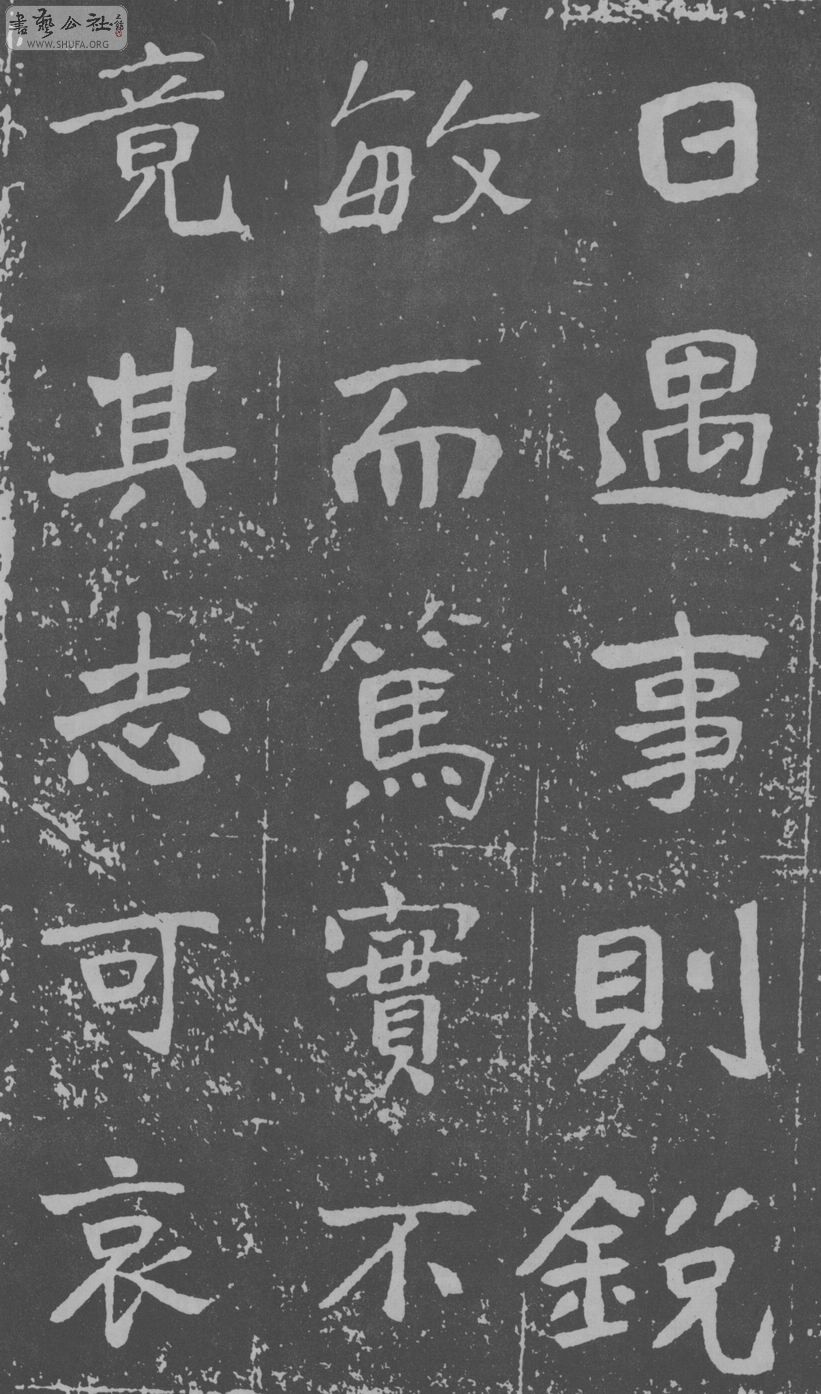 日遇事則銳
敏而篤實不
竟其志可哀
書藝公社
WWW.SHUFA.ORG